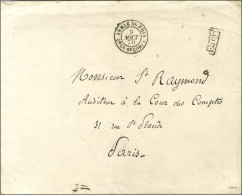 ARMÉE DU RHIN
9
AOUT
70
P.P.
Monsieur St Raymond
Auditeur à la Cour des Comptes
31 rue St Placide
Paris